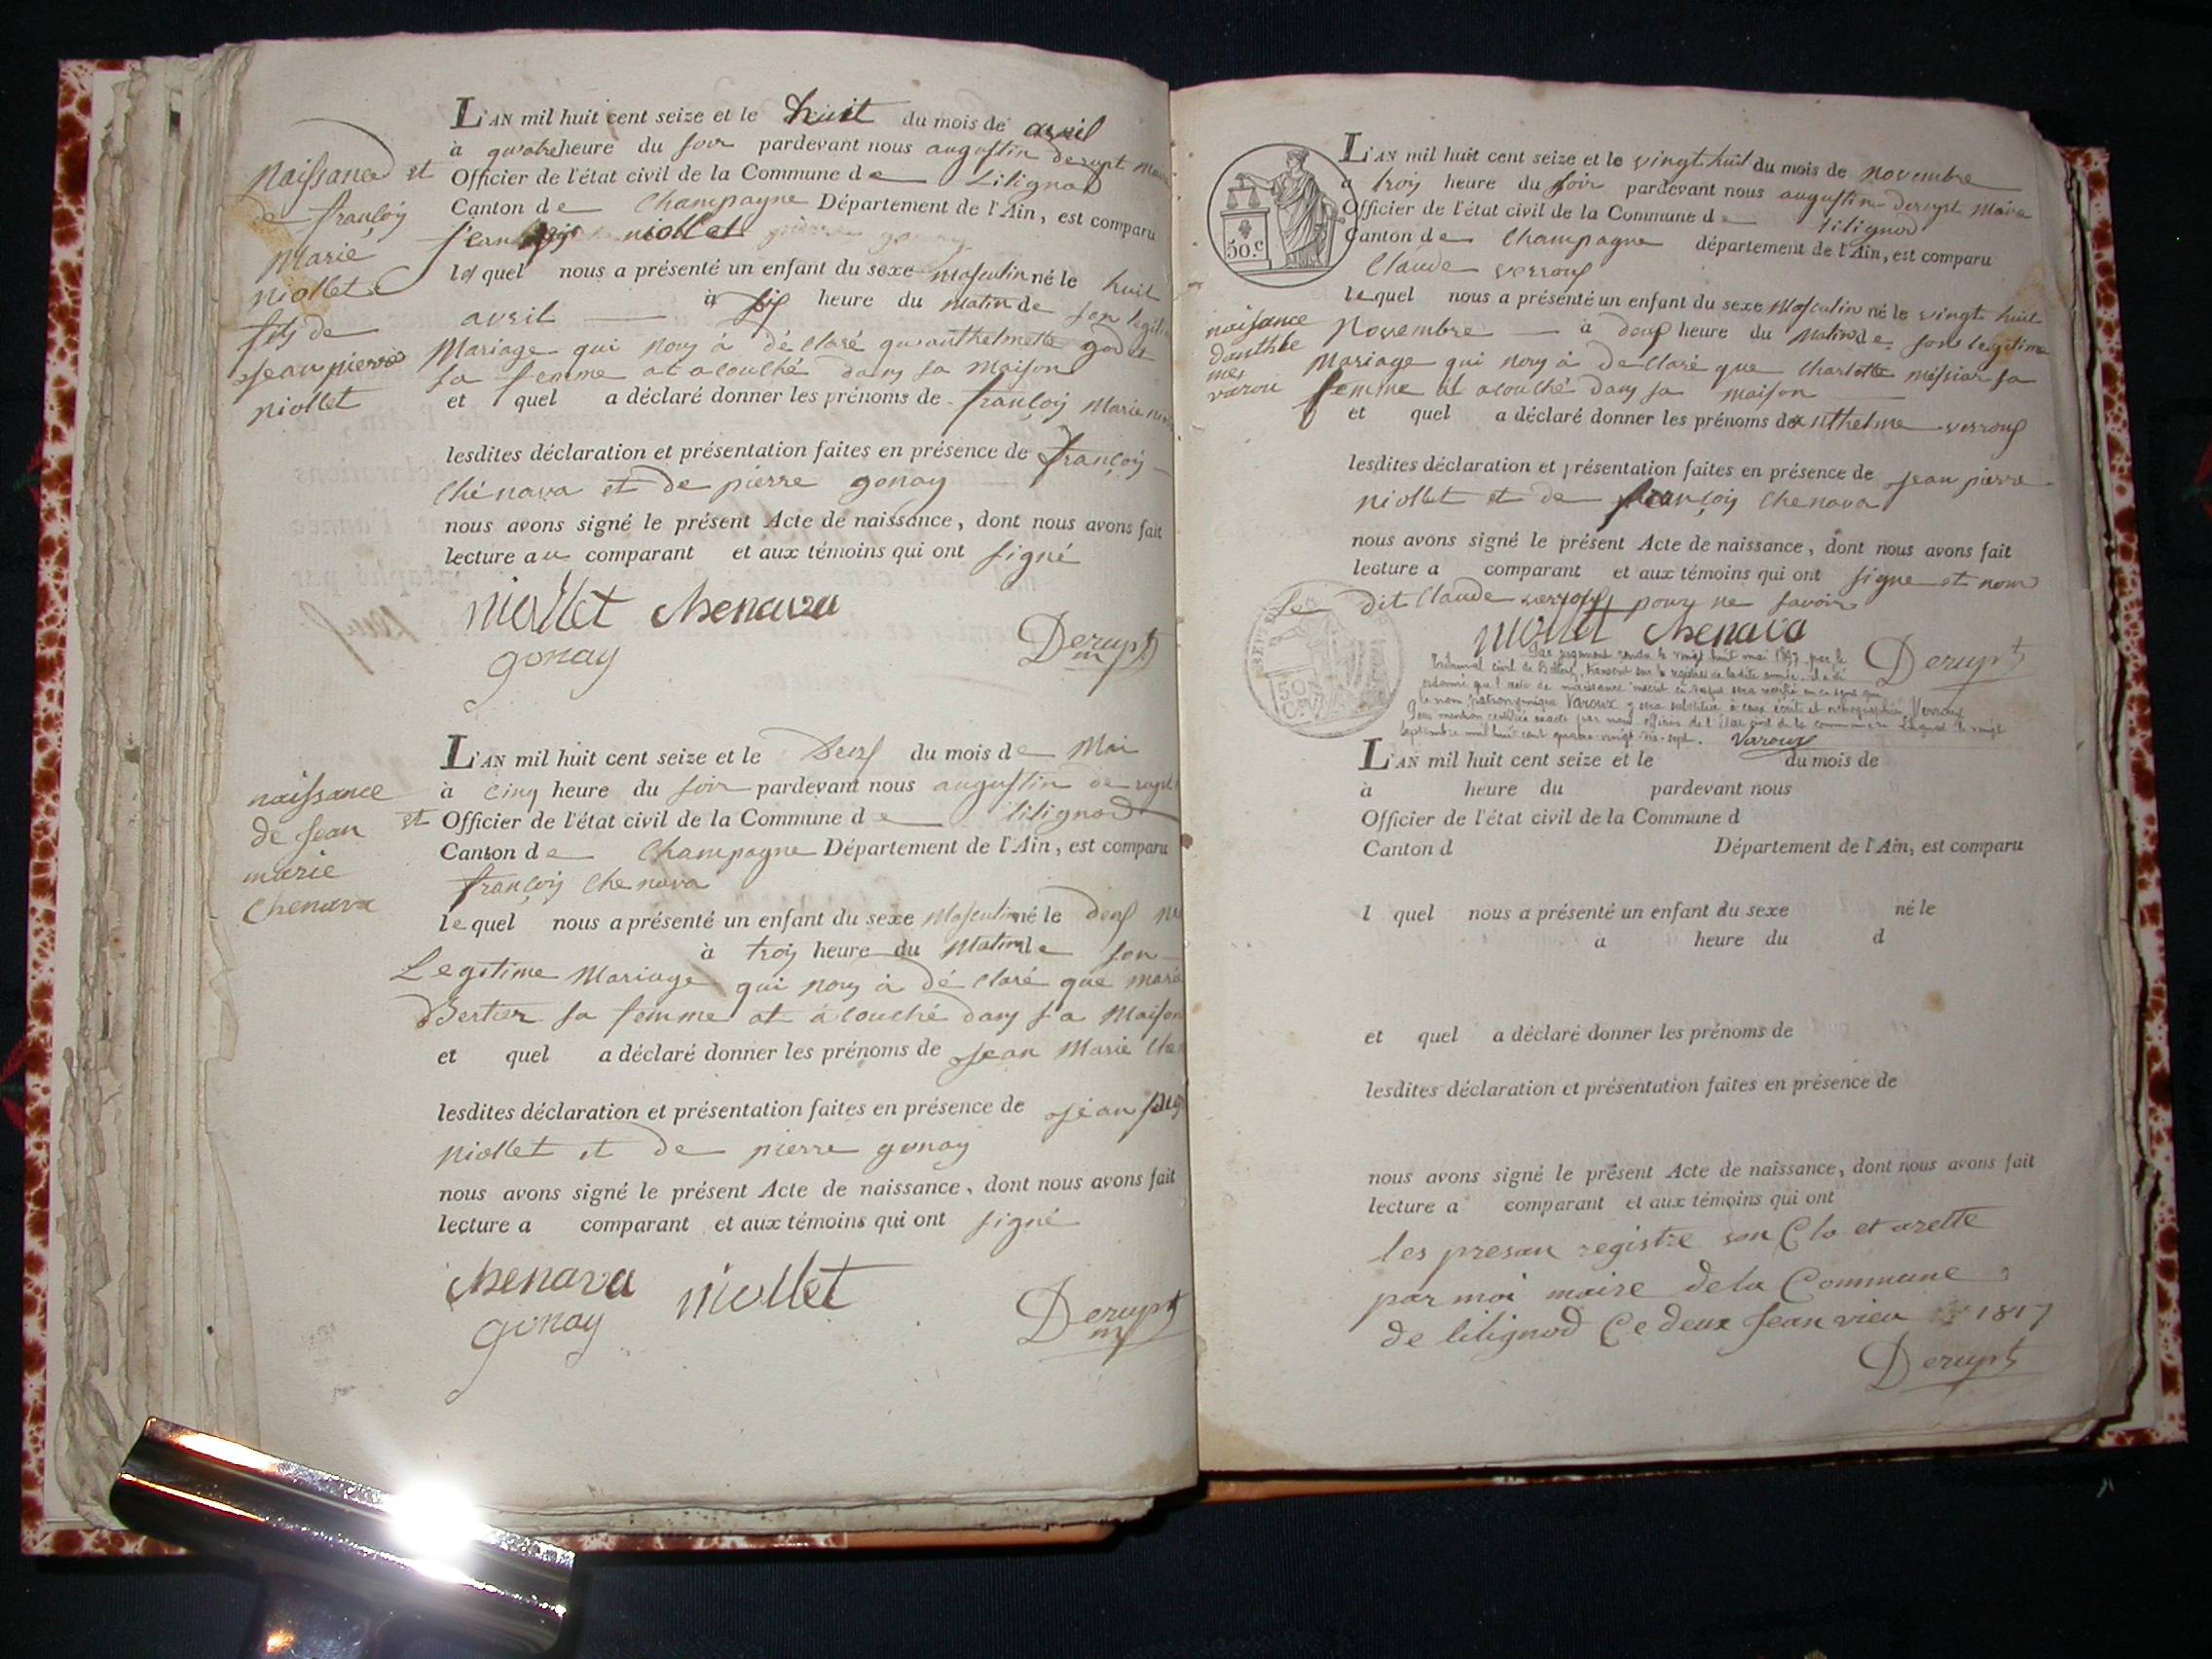 L'AN mil huit cent seize et le huit du mois de avril
à quatre heure du soir pardevant nous augustin derupt maire
et Officier de l'état civil de la Commune de Lilignod
Canton de Champagne Département de l'Ain, est comparu
jean niollet
lequel nous a présenté un enfant du sexe masculin né le huit
avril à six heure du matin de son legitime
Mariage qui nous à déclaré qu'anthelmette godet
sa femme at acouché dans sa Maison
et quel a déclaré donner les prénoms de françois Marie
lesdites déclaration et présentation faites en présence de françois
chénava et de pierre gonay
nous avons signé le présent Acte de naissance, dont nous avons fait
lecture au comparant et aux témoins qui ont signé
niollet chenava
gonay Derupt
m
Naissance
de françois
Marie
niollet
fils de
jean pierre
niollet
L'AN mil huit cent seize et le deux du mois de Mai
à cinq heure du soir pardevant nous augustin derupt
et Officier de l'état civil de la Commune de lilignod
Canton de Champagne Département de l'Ain, est comparu
françois chenava
lequel nous a présenté un enfant du sexe Masculin né le deux
à trois heure du Matin de son
Legitime Mariage qui nous à déclaré que marie
Bertier sa femme at acouché dans sa Maison
et quel a déclaré donner les prénoms de jean Marie
lesdites déclaration et présentation faites en présence de jean
niollet et de pierre gonay
nous avons signé le présent Acte de naissance, dont nous avons fait
lecture a comparant et aux témoins qui ont signé
chenava niollet
gonay Derupt
m
naissance
de jean
marie
chenava
50.c
L'AN mil huit cent seize et le vingt huit du mois de Novembre
à trois heure du soir pardevant nous augustin derupt Maire
Officier de l'état civil de la Commune de lilignod
Canton de Champagne département de l'Ain, est comparu
Claude verroux
lequel nous a présenté un enfant du sexe Masculin né le vingt huit
Novembre à deux heure du Matin de son legitime
Mariage qui nous à declaré que Charlotte méssiar sa
femme at acouché dans sa maison
et quel a déclaré donner les prénoms de anthelme verroux
lesdites déclaration et présentation faites en présence de jean pierre
niollet et de françois chenava
nous avons signé le présent Acte de naissance, dont nous avons fait
lecture a comparant et aux témoins qui ont signe et nom
le dit Claude verroux pour ne savoir
niollet chenava
Derupt
naisance
danthle
mes
varou
50
Par jugement rendu le vingt huit mai 1897 par le
Tribunal civil de Belley, transcrit sur le registre de ladite année, il a été
ordonné que l'acte de naissance inscrit ci-dessus sera rectifié en ce sens que
le nom patronymique Varoux y sera substitué à ceux écrits et orthographiés Verroux
Dont mention certifiée exacte par nous officier de l'état civil de la commune de Lilignod le vingt
septembre mil huit cent quatre-vingt-dix-sept. Varoux
L'AN mil huit cent seize et le du mois de
à heure du pardevant nous
Officier de l'état civil de la Commune d
Canton d Département de l'Ain, est comparu
l quel nous a présenté un enfant du sexe né le
à heure du d
et quel a déclaré donner les prénoms de
lesdites déclaration et présentation faites en présence de
nous avons signé le présent Acte de naissance, dont nous avons fait
lecture a comparant et aux témoins qui ont
les presan registre son Clo et arette
par moi maire de la Commune
de lilignod Ce deux Jeanvieu 1817
Derupt